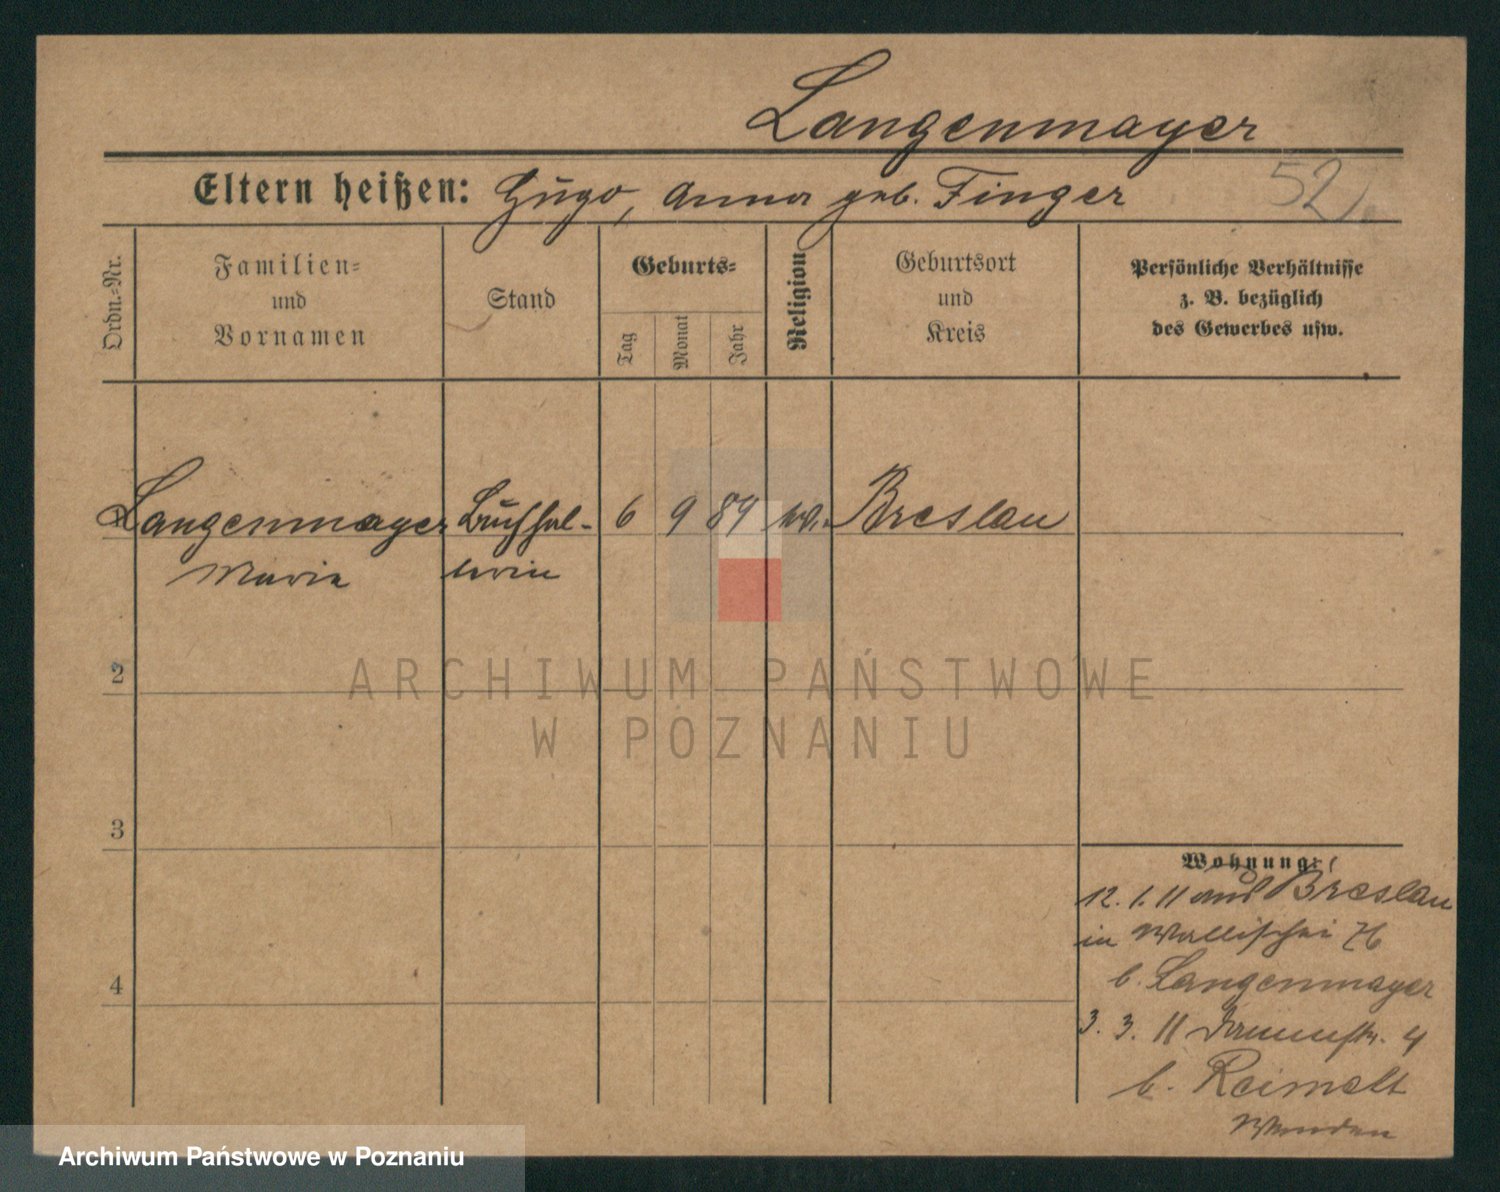 Langenmayer
Eltern heißen: Hugo, Anna geb. Finger
52
Ordn.-Nr.
Familien-
und
Vornamen
Stand
Geburts-
Tag
Monat
Jahr
Religion
Geburtsort
und
Kreis
Persönliche Verhältnisse
z. B. bezüglich
des Gewerbes usw.
Langenmayer Buchhal- 6 9 89 Breslau
Maria terin
2
3
4
Wohnung:
12. 1. 11 aus Breslau
in Wallischei 76
b. Langenmayer
3. 3. 11 Dammstr. 4
b. Reimelt
ARCHIWUM PAŃSTWOWE
W POZNANIU
Archiwum Państwowe w Poznaniu